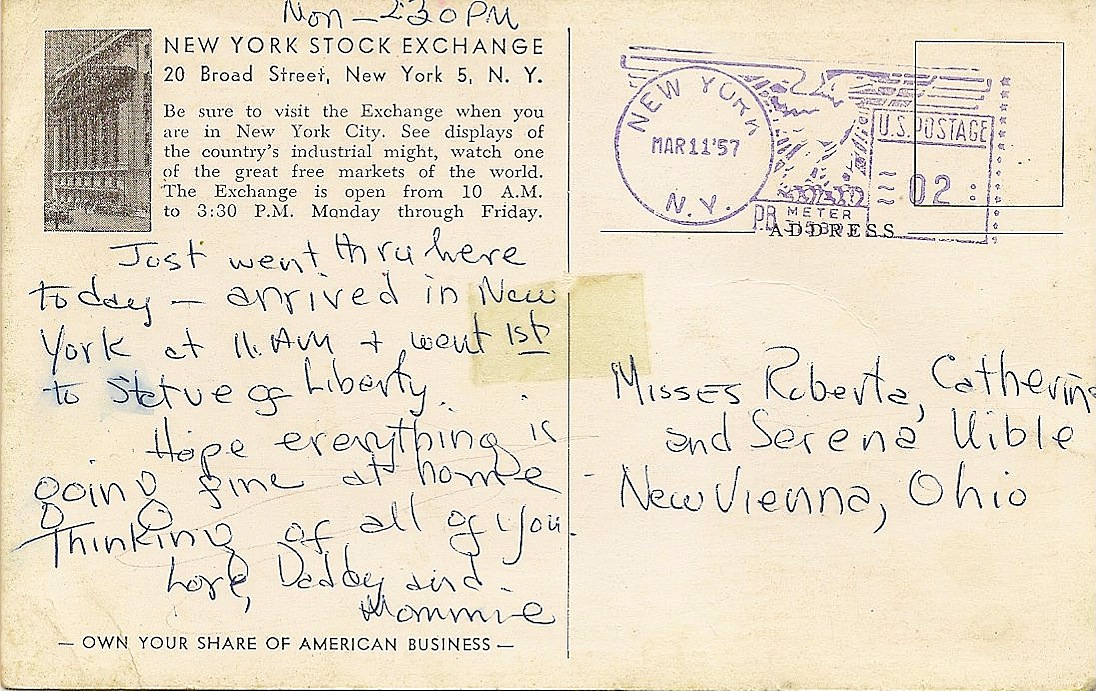 Mon - 2:30 PM
NEW YORK STOCK EXCHANGE
20 Broad Street, New York 5, N. Y.
Be sure to visit the Exchange when you
are in New York City. See displays of
the country's industrial might, watch one
of the great free markets of the world.
The Exchange is open from 10 A.M.
to 3:30 P.M. Monday through Friday.
Just went thru here
today — arrived in New
York at 11. AM + went 1st
to Statue of Liberty.
Hope everything is
going fine at home
Thinking of all of you.
Love, Daddy and
Mommie
— OWN YOUR SHARE OF AMERICAN BUSINESS —
NEW YORK
MAR 11 '57
N. Y.
U.S. POSTAGE
02
P.B.
METER
ADDRESS
Misses Roberta, Catherine
and Serena Uible
New Vienna, Ohio